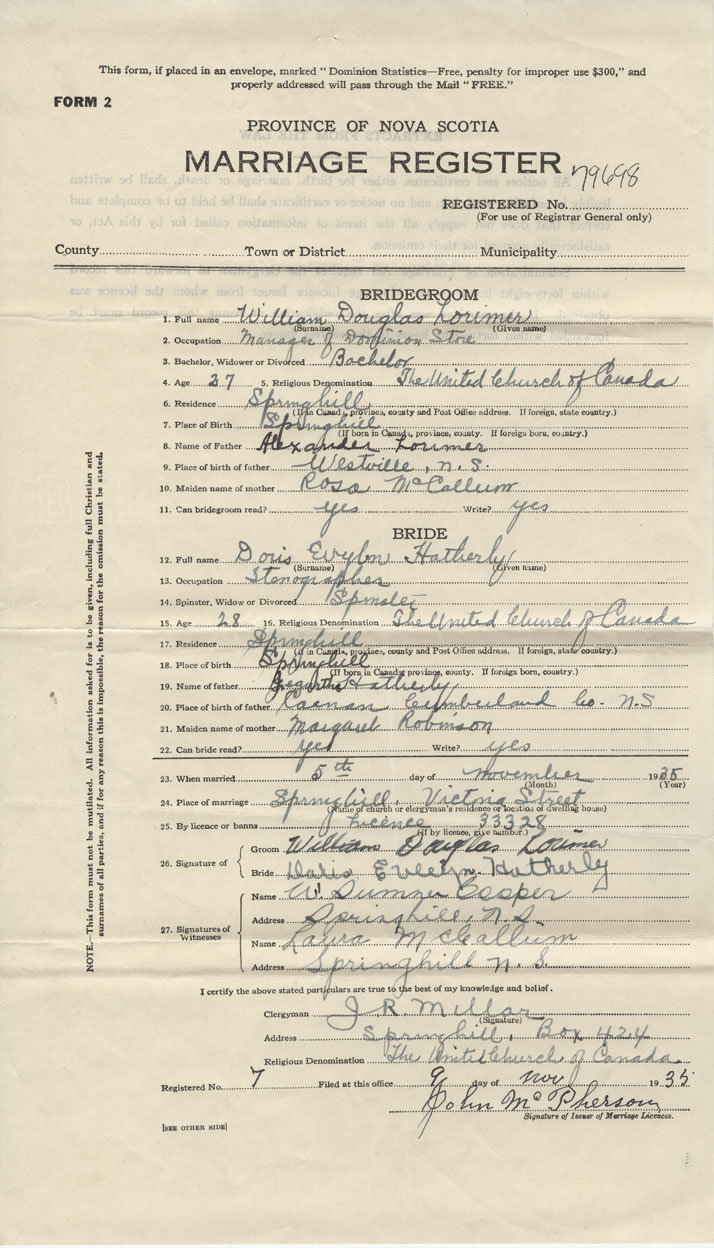 This form, if placed in an envelope, marked "Dominion Statistics—Free, penalty for improper use $300," and
properly addressed will pass through the Mail "FREE."
FORM 2
PROVINCE OF NOVA SCOTIA
MARRIAGE REGISTER 79698
REGISTERED No.
(For use of Registrar General only)
County Town or District Municipality
BRIDEGROOM
1. Full name William Douglas Lorimer
(Surname) (Given name)
2. Occupation Manager of Dominion Store
3. Bachelor, Widower or Divorced Bachelor
4. Age 27 5. Religious Denomination The United Church of Canada
6. Residence Springhill
(If in Canada, province, county and Post Office address. If foreign, state country.)
7. Place of Birth Springhill
(If born in Canada, province, county. If foreign born, country.)
8. Name of Father Alexander Lorimer
9. Place of birth of father Westville, N.S.
10. Maiden name of mother Rosa McCallum
11. Can bridegroom read? yes Write? yes
BRIDE
12. Full name Doris Evylon Hatherly
(Surname) (Given name)
13. Occupation Stenographer
14. Spinster, Widow or Divorced Spinster
15. Age 28 16. Religious Denomination The United Church of Canada
17. Residence Springhill
(If in Canada, province, county and Post Office address. If foreign, state country.)
18. Place of birth Springhill
(If born in Canada, province, county. If foreign born, country.)
19. Name of father Hatherly
20. Place of birth of father Cumberland Co. N.S
21. Maiden name of mother Margaret Robinson
22. Can bride read? yes Write? yes
23. When married 5th day of November 1935
(Month) (Year)
24. Place of marriage Springhill, Victoria Street
(Name of church or clergyman's residence or location of dwelling house)
25. By licence or banns Licence 33328
(If by licence, give number.)
26. Signature of
Groom William Douglas Lorimer
Bride Doris Evelyn Hatherly
27. Signatures of Witnesses
Name W. Sumner Cooper
Address Springhill, N.S.
Name Laura McCallum
Address Springhill N.S.
I certify the above stated particulars are true to the best of my knowledge and belief.
Clergyman J R Millar
(Signature)
Address Springhill, Box 424
Religious Denomination The United Church of Canada.
Registered No. 7 Filed at this office 9 day of Nov 1935
John McPherson
Signature of Issuer of Marriage Licences.
[SEE OTHER SIDE]
NOTE.—This form must not be mutilated. All information asked for is to be given, including full Christian and
surnames of all parties, and if for any reason this is impossible, the reason for the omission must be stated.